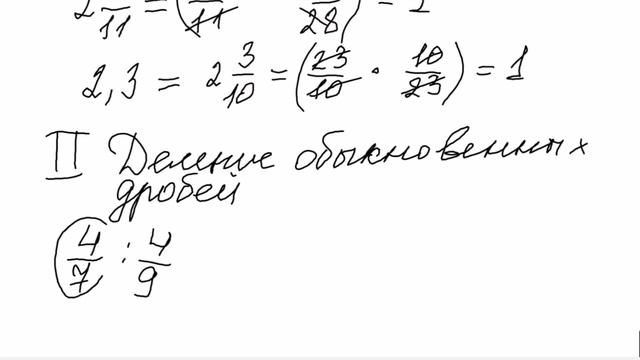 2 /11 = ( /11 /28) = 1
2,3 = 2 3/10 = (23/10 · 10/23) = 1
II Деление обыкновенных
дробей
4/7 : 4/9